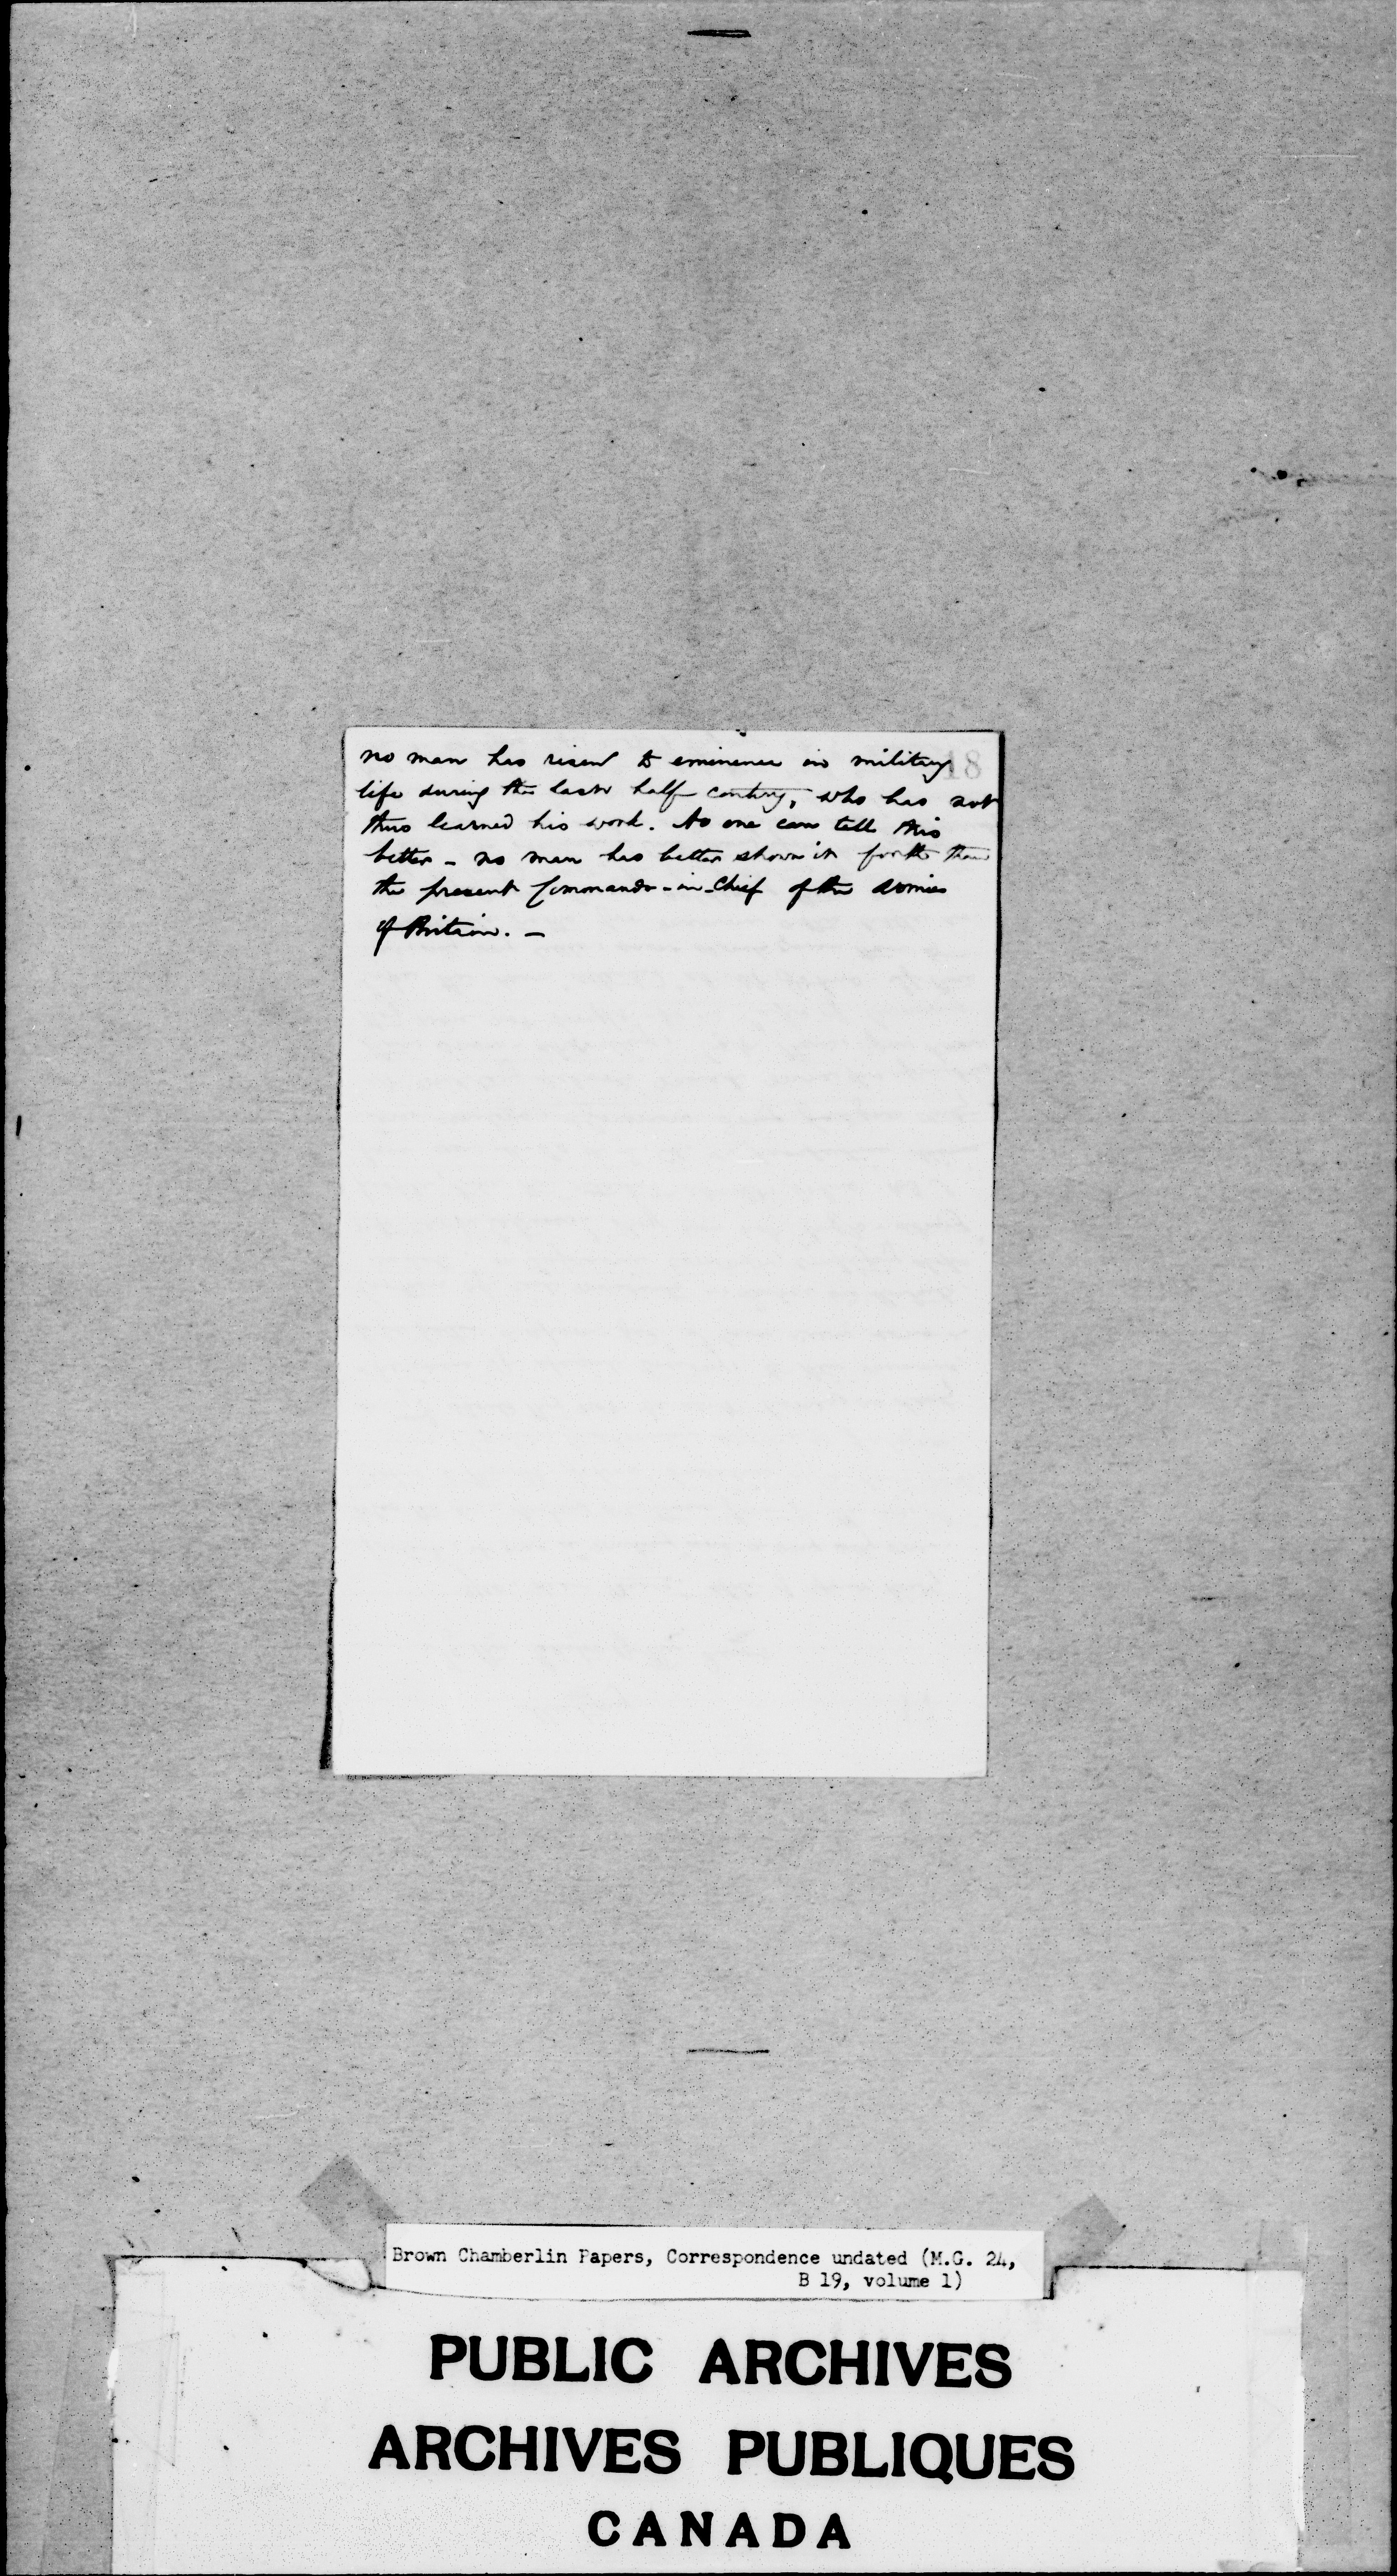 18
no man has risen to eminence in military
life during the last half century, who has not
thus learned his work. No one can tell this
better - no man has better shown it forth than
the present Commander-in-Chief of the Armies
of Britain. -
Brown Chamberlin Papers, Correspondence undated (M.G. 24,
B 19, volume 1)
PUBLIC ARCHIVES
ARCHIVES PUBLIQUES
CANADA